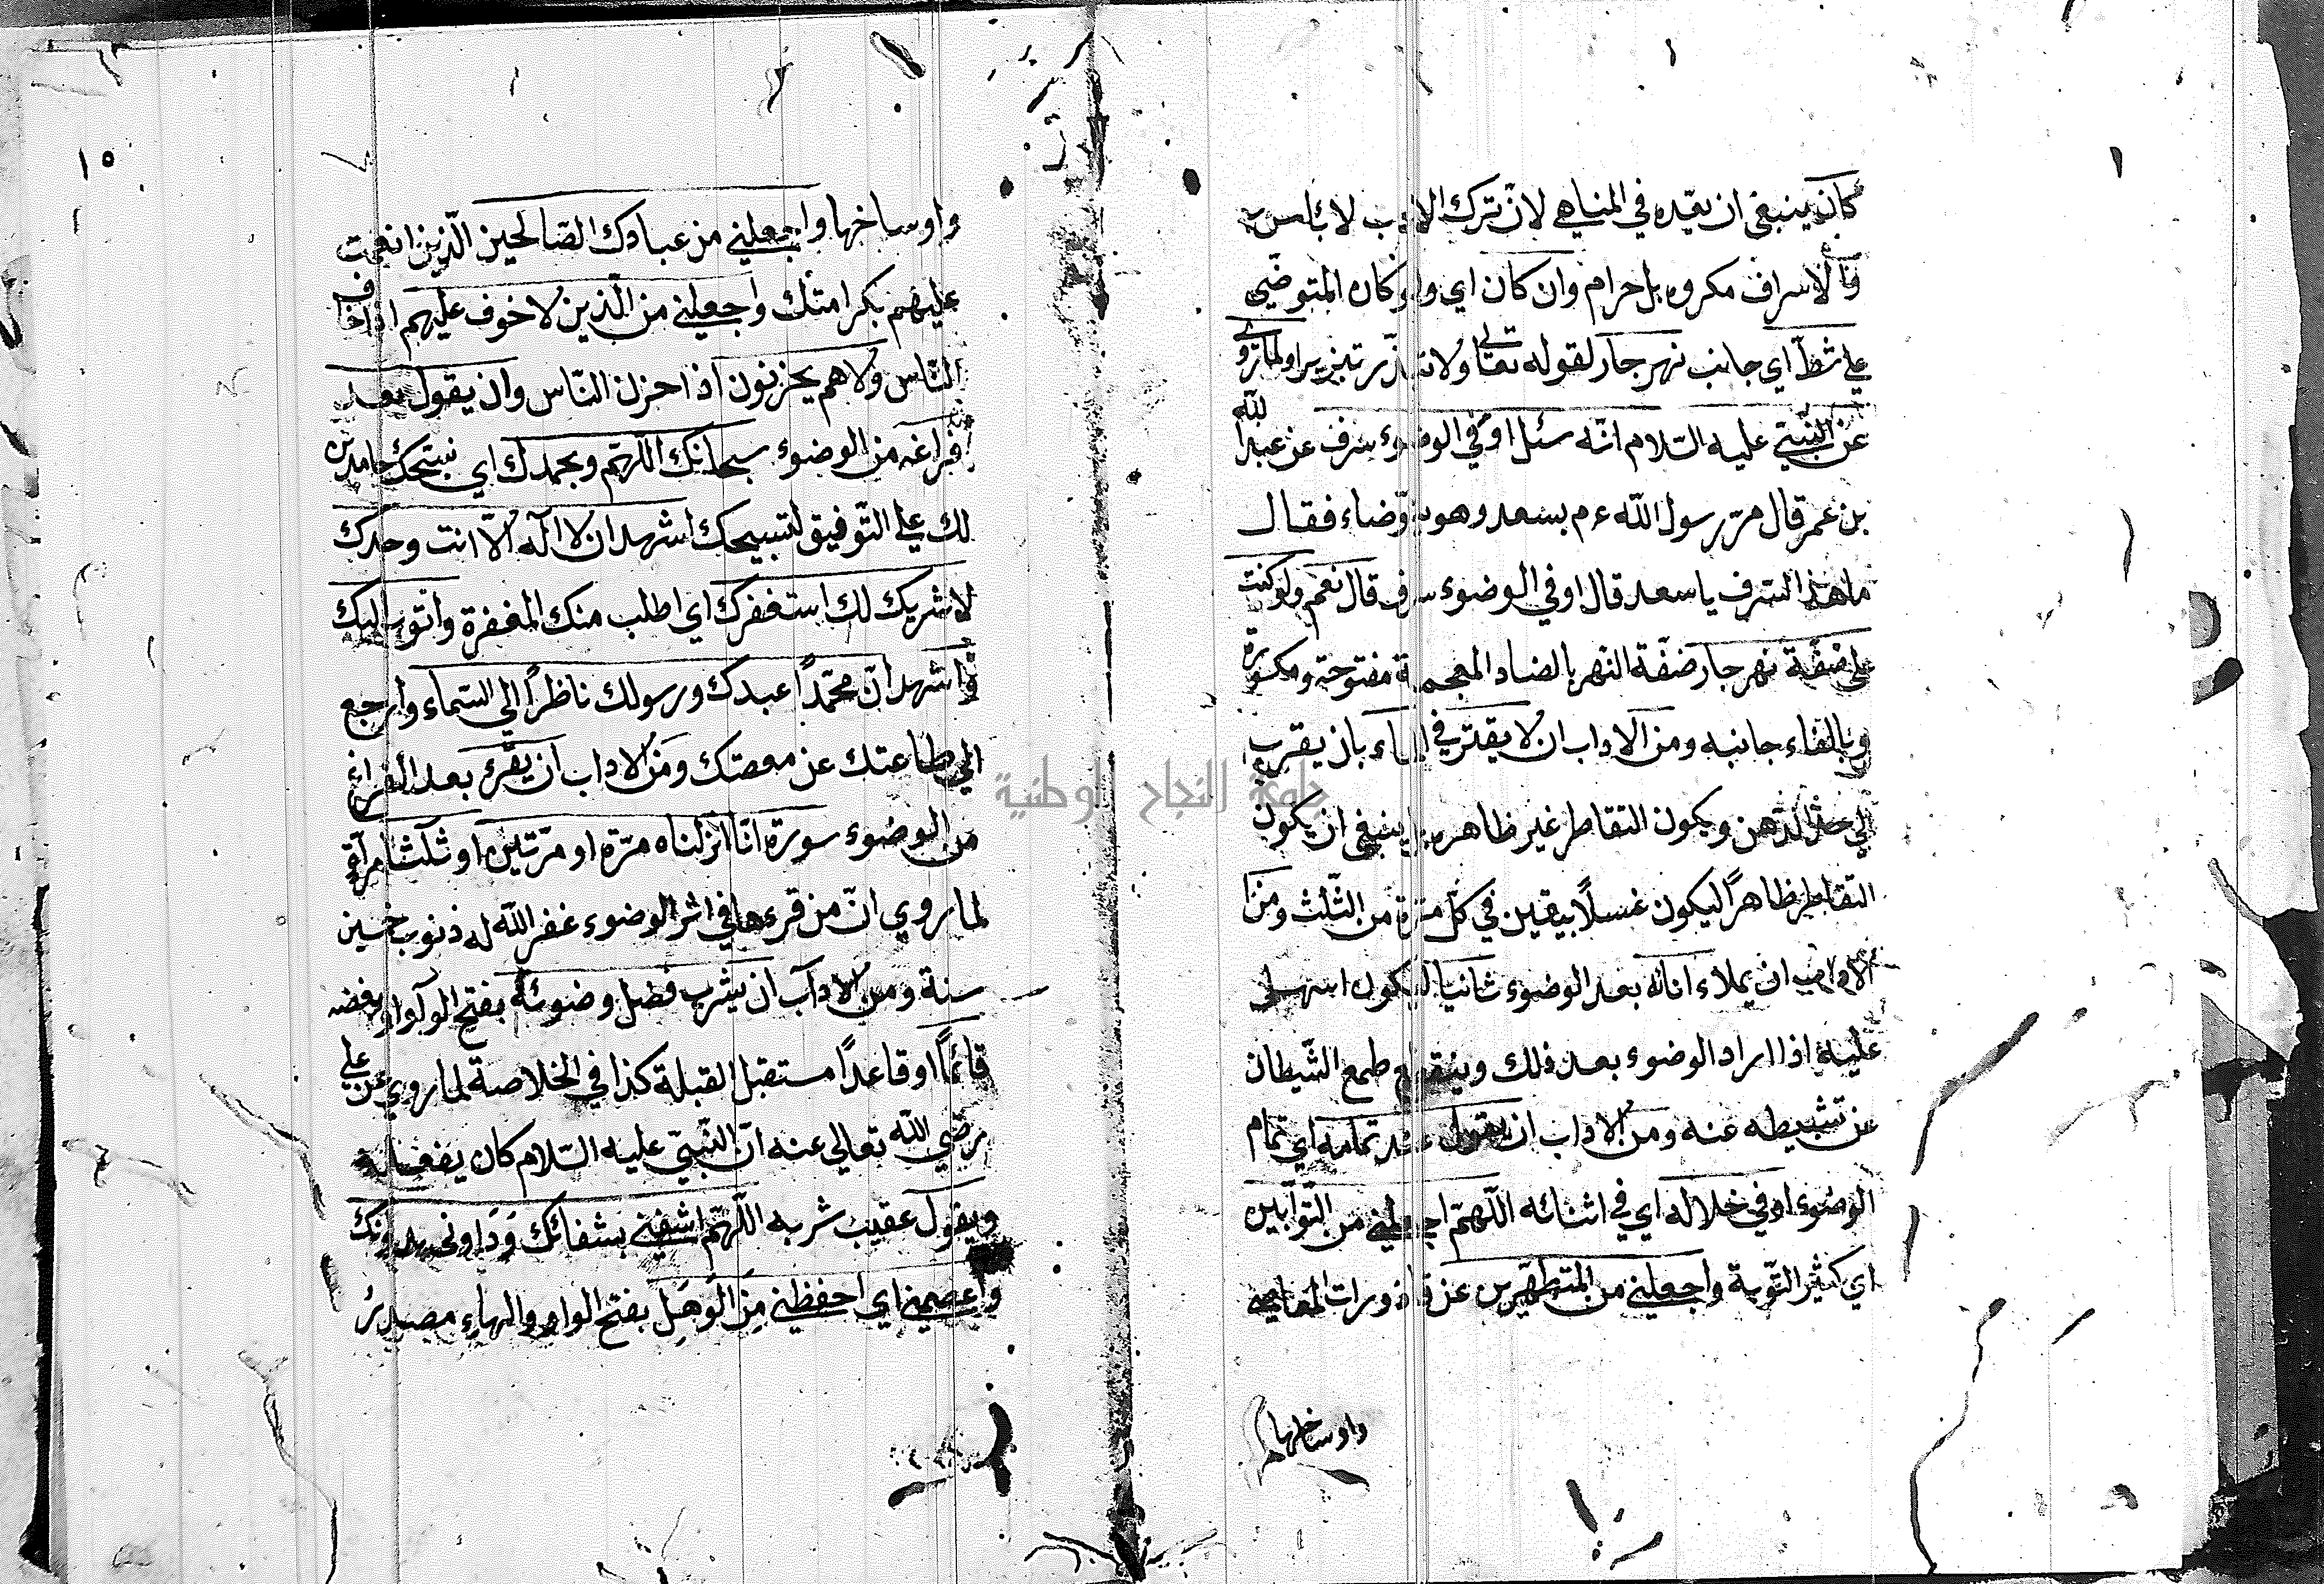 كان ينبغي ان يعده في المناهي لان ترك الادب لا بأس به
والاسراف مكروه بل حرام وان كان اي ولو كان المتوضي
على شط اي جانب نهر جار لقوله تعالى ولا تبذر تبذيرا ولما روي
عن النبي عليه السلام انه سئل اوفي الوضوء سرف عن عبد الله
بن عمر قال مر رسول الله ءم بسعد وهو يتوضاء فقال
ما هذا السرف يا سعد قال اوفي الوضوء سرف قال نعم ولو كنت
على ضفة نهر جار ضفة النهر بالضاد المعجمة مفتوحة ومكسورة
وبالفاء جانبه ومن الاداب ان لا يقتر في الماء بان يقرب
الى حد الدهن ويكون التقاطر غير ظاهر بل ينبغي ان يكون
التقاطر ظاهرًا ليكون غسلًا بيقين في كل مرة من الثلث ومن
الاداب ان يملاء اناءه بعد الوضوء ثانيا ليكون اسهل
عليه اذا اراد الوضوء بعد ذلك وينقطع طمع الشيطان
عن تثبيطه عنه ومن الاداب ان يقول عند تمامه اي تمام
الوضوء او في خلاله اي في اثنائه اللهم اجعلني من التوابين
اي كثير التوبة واجعلني من المتطهرين عن قاذورات المعاصي
واوساخها
١٥
واوساخها واجعلني من عبادك الصالحين الذين انعمت
عليهم بكرامتك واجعلني من الذين لا خوف عليهم اذا خاف
الناس ولا هم يحزنون اذا حزن الناس وان يقول بعد
فراغه من الوضوء سبحانك اللهم وبحمدك اي نسبحك حامدين
لك على التوفيق لتسبيحك اشهد ان لا اله الا انت وحدك
لا شريك لك استغفرك اي اطلب منك المغفرة واتوب اليك
واشهد ان محمدًا عبدك ورسولك ناظرًا الي السماء وارجع
الي طاعتك عن معصتك ومن الاداب ان يقرء بعد الفراغ
من الوضوء سورة انا انزلناه مرة او مرتين او ثلثا مرآة
لما روي ان من قرءها في اثر الوضوء غفر الله له ذنوب خمسين
سنة ومن الاداب ان يشرب فضل وضوئه بفتح الواو او بعضه
قائمًا او قاعدًا مستقبل القبلة كذا في الخلاصة لما روي عن علي
رضي الله تعالي عنه ان النبي عليه السلام كان يفعله
ويقول عقيب شربه اللهم اشفني بشفائك وداوني بدوائك
واعصمني اي احفظني من الوهل بفتح الواو والهاء مصدر
جامعة النجاح الوطنية